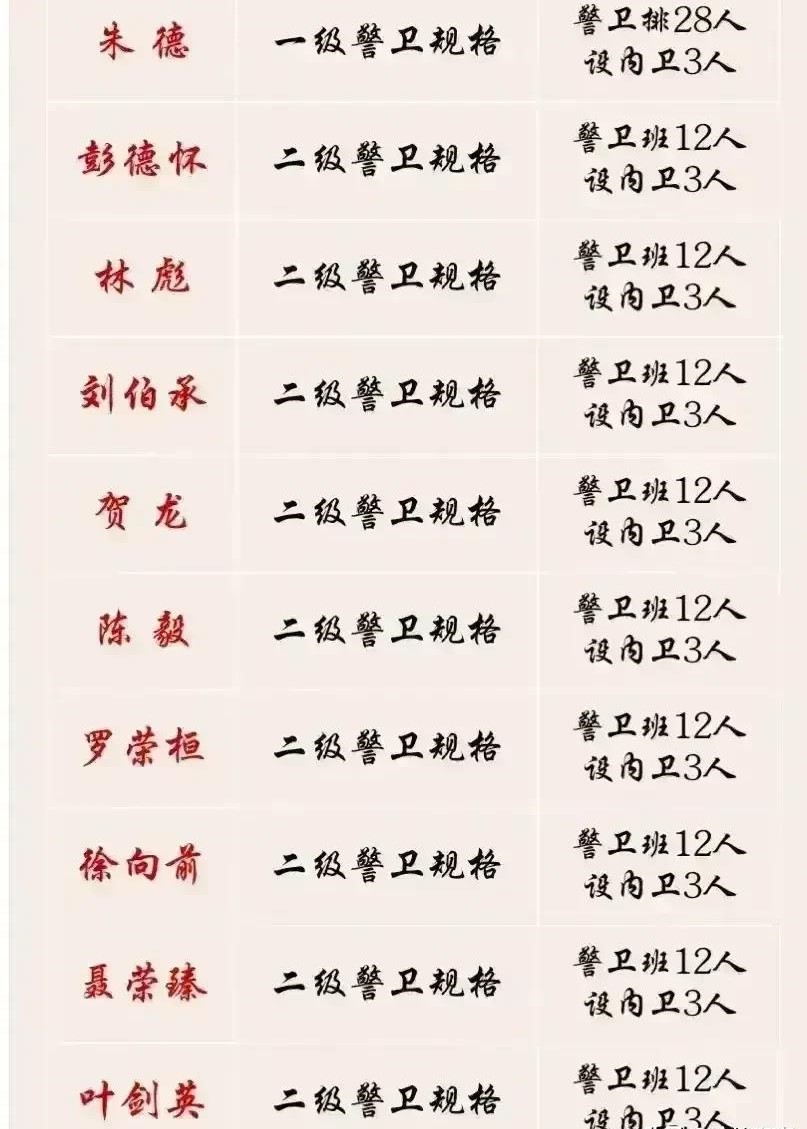 朱德 一级警卫规格 警卫排28人
设内卫3人
彭德怀 二级警卫规格 警卫班12人
设内卫3人
林彪 二级警卫规格 警卫班12人
设内卫3人
刘伯承 二级警卫规格 警卫班12人
设内卫3人
贺龙 二级警卫规格 警卫班12人
设内卫3人
陈毅 二级警卫规格 警卫班12人
设内卫3人
罗荣桓 二级警卫规格 警卫班12人
设内卫3人
徐向前 二级警卫规格 警卫班12人
设内卫3人
聂荣臻 二级警卫规格 警卫班12人
设内卫3人
叶剑英 二级警卫规格 警卫班12人
设内卫3人